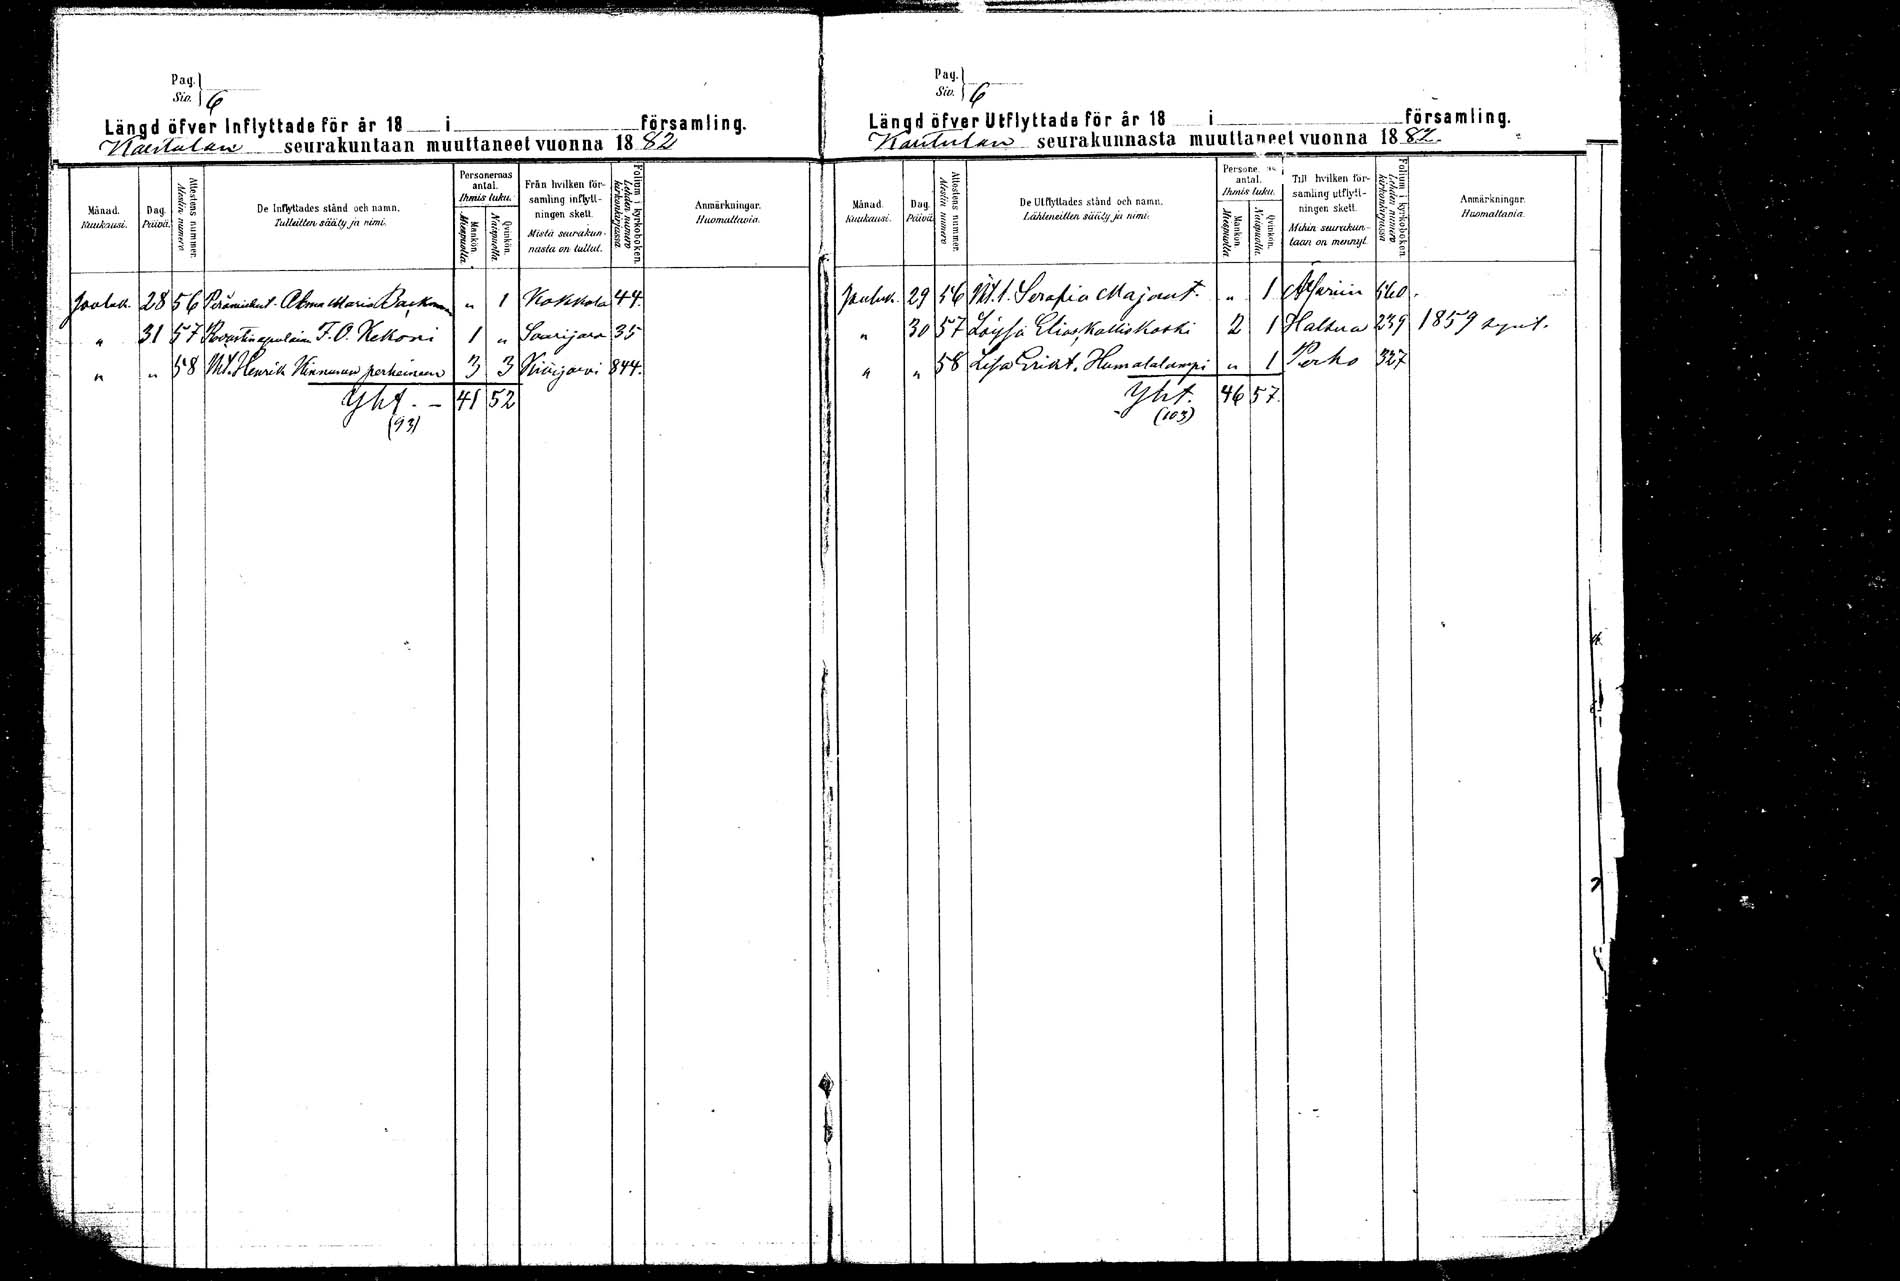 Pag.
Siv. 6
Längd öfver Inflyttade för år 18 i församling.
Kautulan seurakuntaan muuttaneet vuonna 1882
Månad. Kuukausi.
Dag. Päivä.
Attestens nummer. Atestin numero
De Inflyttades stånd och namn. Tulleitten sääty ja nimi.
Personernas antal. Ihmis luku.
Mankön. Miespuolta.
Qvinkön. Naispuolta.
Från hvilken församling inflyttningen skett. Mistä seurakunnasta on tullut.
Folium i kyrkoboken. Lehden numero kirkonkirjassa
Anmärkningar. Huomattavia.
Jouluk. 28 56 Alma Maria „ 1 Kokkola 44.
„ 31 57 Rovastin apulainen F. O. Kekoni 1 „ Saarijärvi 35
„ „ 58 Henrik Kinnunen perheineen 3 3 Kivijärvi 844.
Yht. – 41 52
(93)
Pag.
Siv. 6
Längd öfver Utflyttade för år 18 i församling.
Kautulan seurakunnasta muuttaneet vuonna 1882.
Månad. Kuukausi.
Dag. Päivä
Attestens nummer. Atestin numero
De Utflyttades stånd och namn. Lähteneitten sääty ja nimi.
Persone antal. Ihmis luku.
Mankön Miespuolta
Qvinkön. Naispuolta.
Till hvilken församling utflyttningen skett. Mihin seurakuntaan on mennyt.
Folium i kyrkoboken. Lehden numero kirkonkirjassa
Anmärkningar. Huomattavia.
Jouluk. 29 56 Serafia Majant. „ 1 560.
„ 30 57 Elias Kalliskoski 2 1 Halsua 239 1859 synt.
„ „ 58 Lisa Erikt. Humalalampi „ 1 Perho 327
Yht. 46 57.
(103)